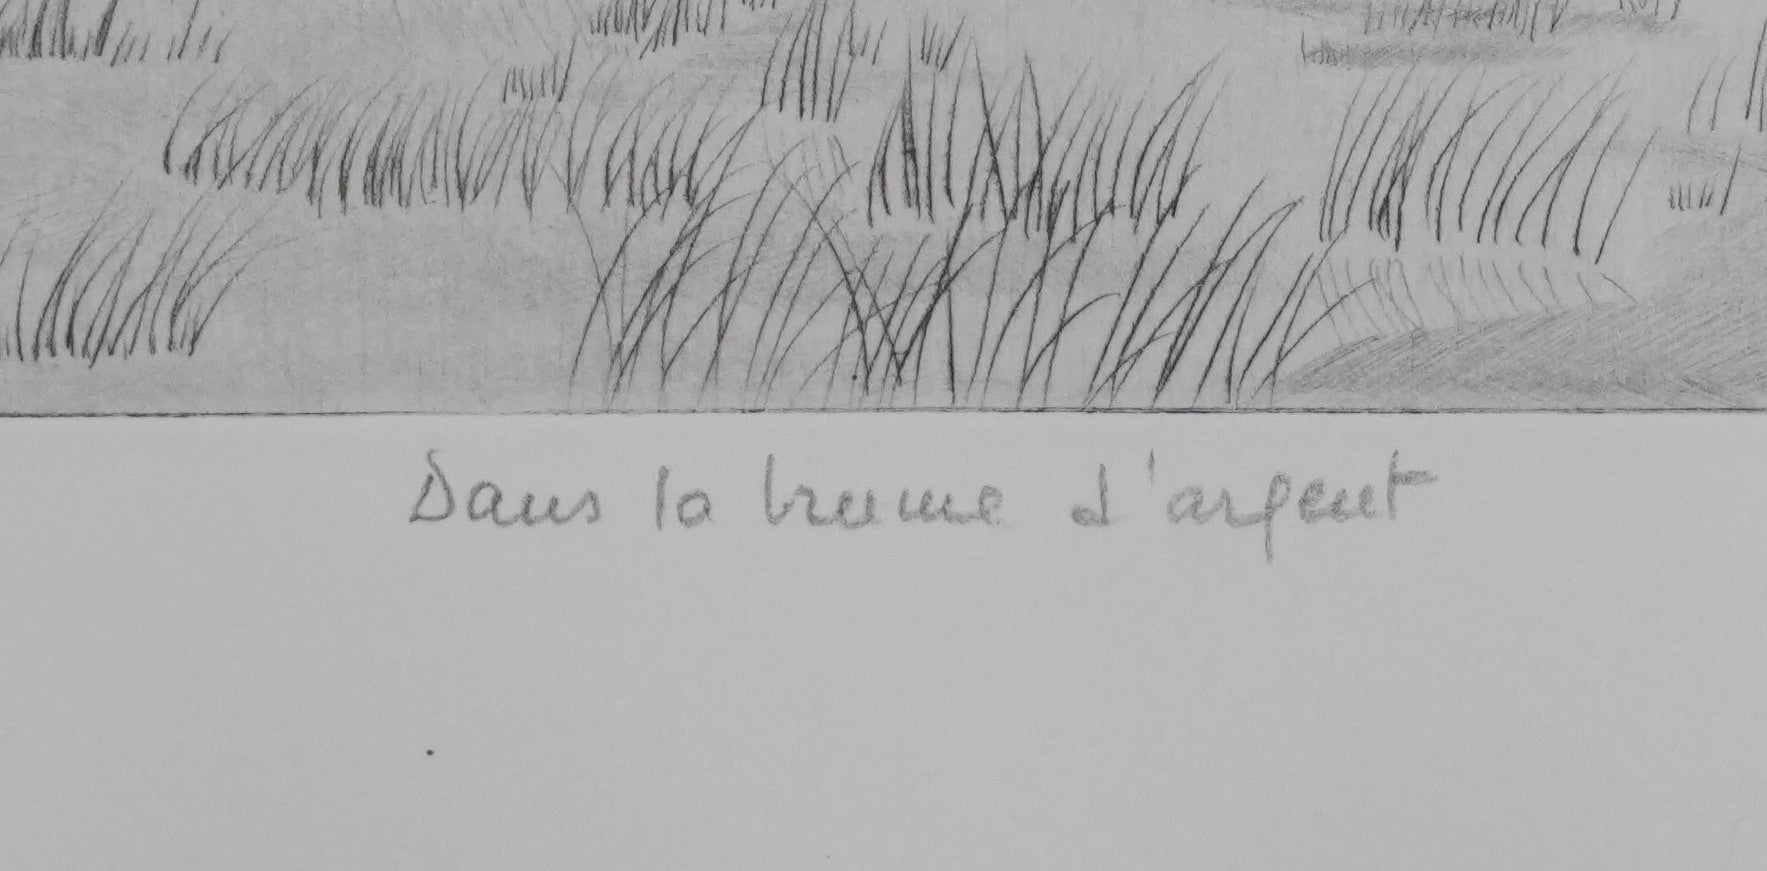 Dans la brume d'argent